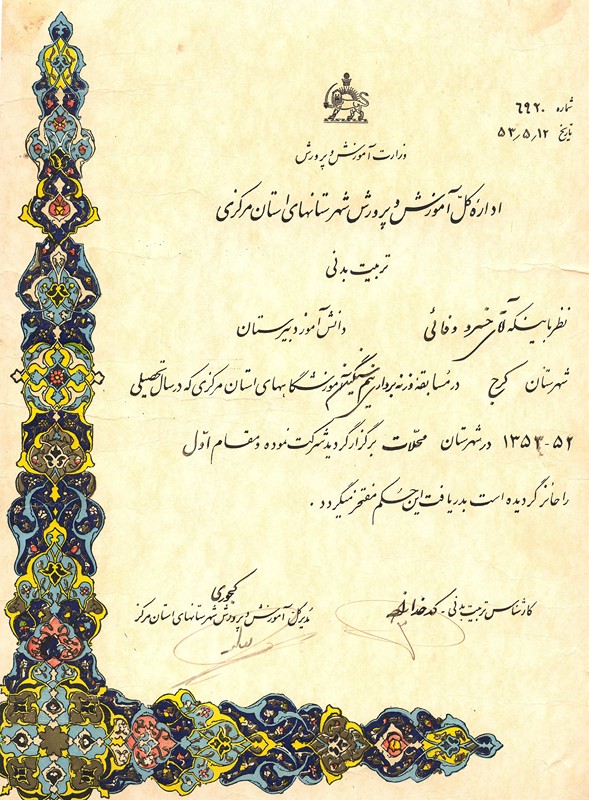 شماره ۶۹۲۰
تاریخ ۵۳٫۵٫۱۲
وزارت آموزش و پرورش
ادارهٔ کلّ آموزش و پرورش شهرستانهای استان مرکزی
تربیت بدنی
نظر باینکه آقای خسرو وفائی دانش آموز دبیرستان
شهرستان کرج در مسابقه وزنه برداری نیم سنگین آموزشگاههای استان مرکزی که در سال تحصیلی
۵۲-۱۳۵۳ در شهرستان محلّات برگزار گردید شرکت نموده و مقام اوّل
را حائز گردیده است بدریافت این حکم مفتخر میگردد.
کارشناس تربیت بدنی -
کجوری
مدیر کلّ آموزش و پرورش شهرستانهای استان مرکز